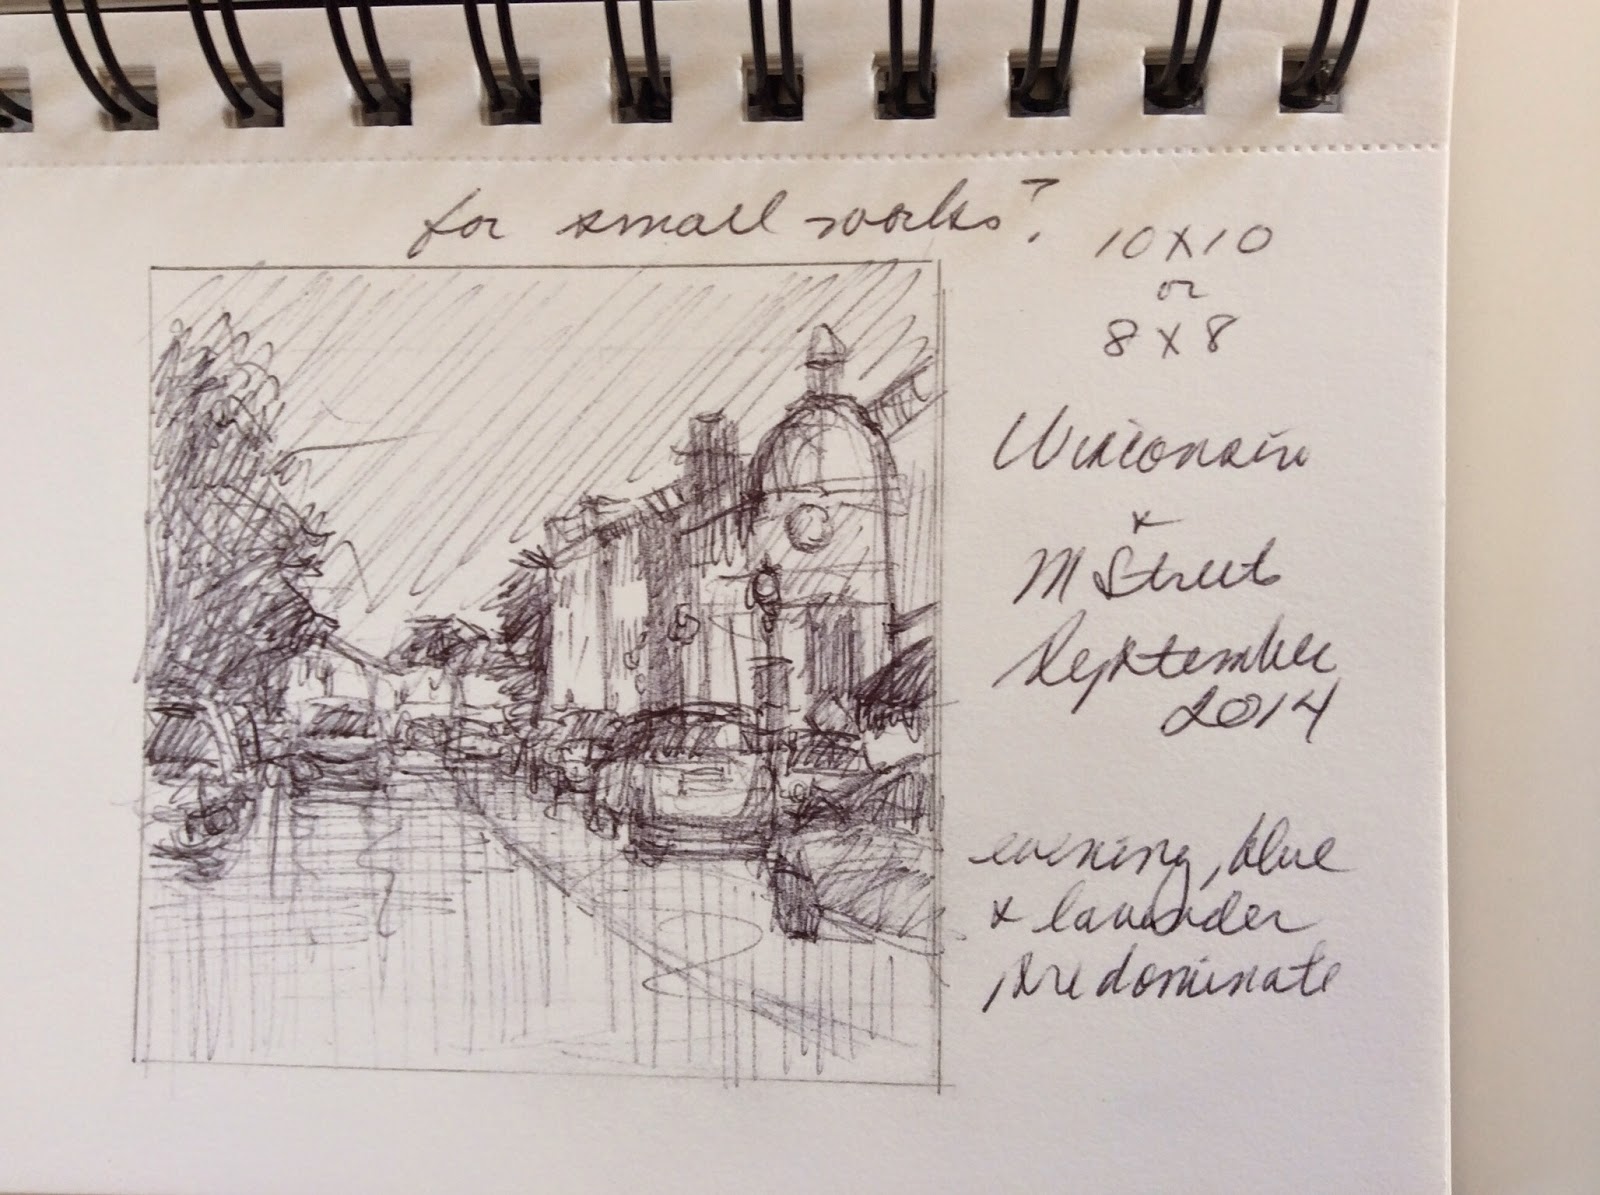 for small works?
10 x 10
or
8 x 8
Wisconsin
&
M Street
September
2014
evening, blue
& lavender
predominate